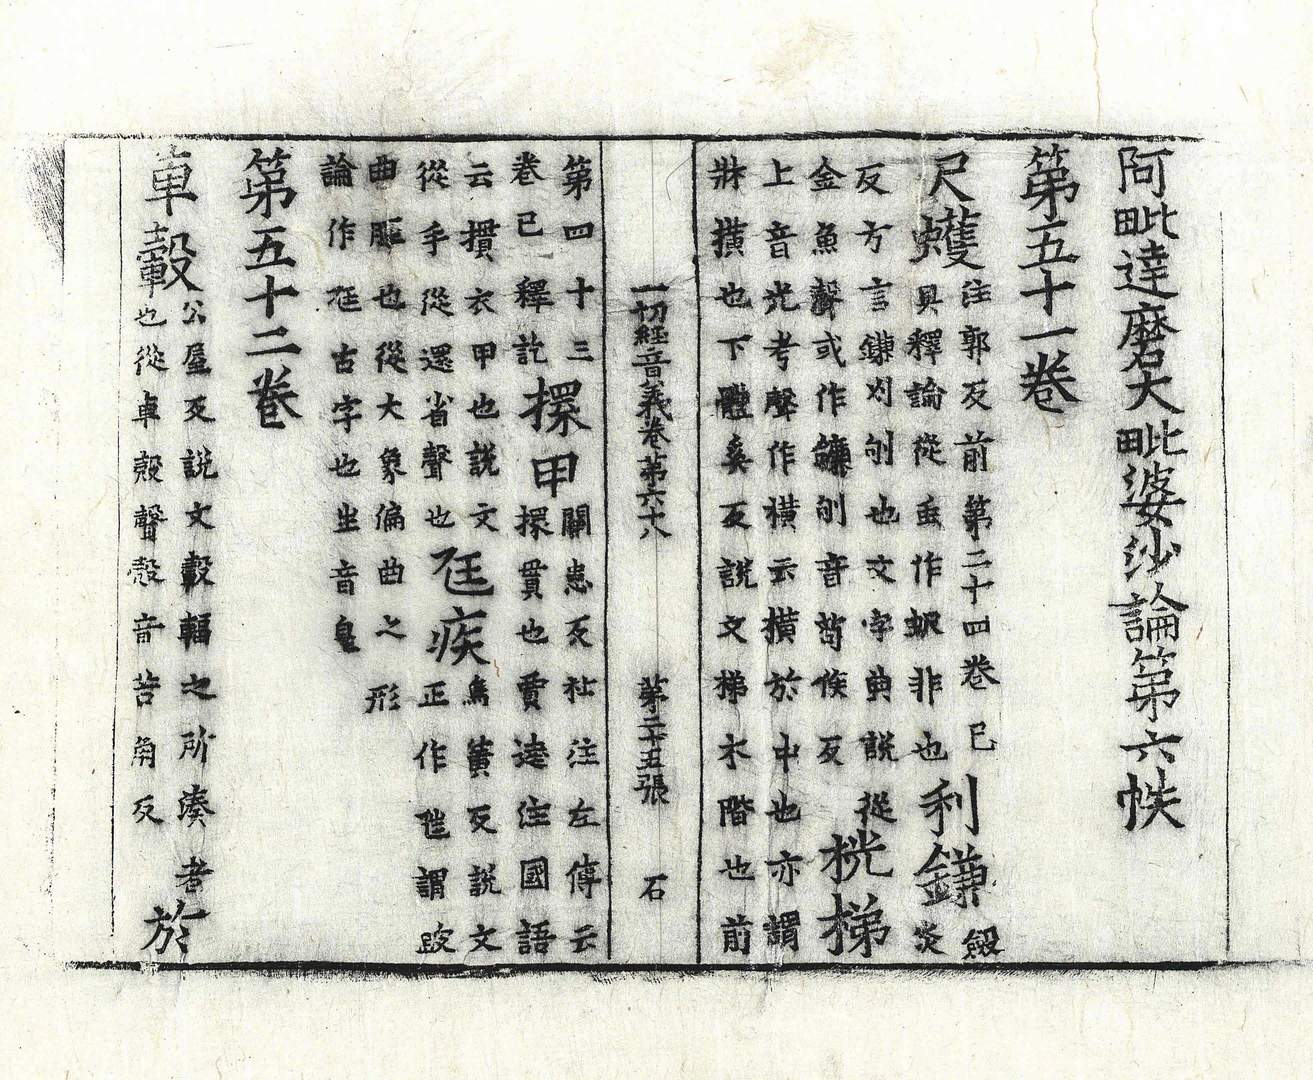 阿毗達磨大毗婆沙論第六帙
第五十一卷
尺蠖
注郭反前第二十四卷已
具釋論從虫作蚇非也
利鎌
劔
炎
反方言鎌刈也文字典説從
金魚聲或作鐮音苟候反
桄梯
上音光考聲作横云横於中也亦謂
牀横也下體奚反説文梯木階也前
一切經音義卷第六十八 第二十五張 石
第四十三
卷已釋訖
擐甲
關患反杜注左傳云
擐貫也賈逵注國語
云擐衣甲也説文
從手從還省聲也
尪疾
烏黄反説文
正作謂跛
曲脛也從大象偏曲之形
論作尪古字也㞷音皇
第五十二卷
車轂
公屋反説文轂輻之所湊者
也從車㱿聲㱿音苦角反
於